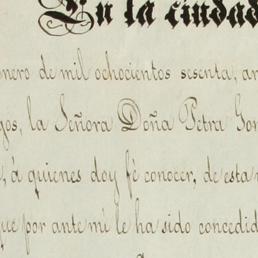 En la ciudad
nero de mil ochocientos sesenta, an
gos, la Señora Doña Petra Gon
, á quienes doy fé conocer, de esta
que por ante mi le ha sido concedid